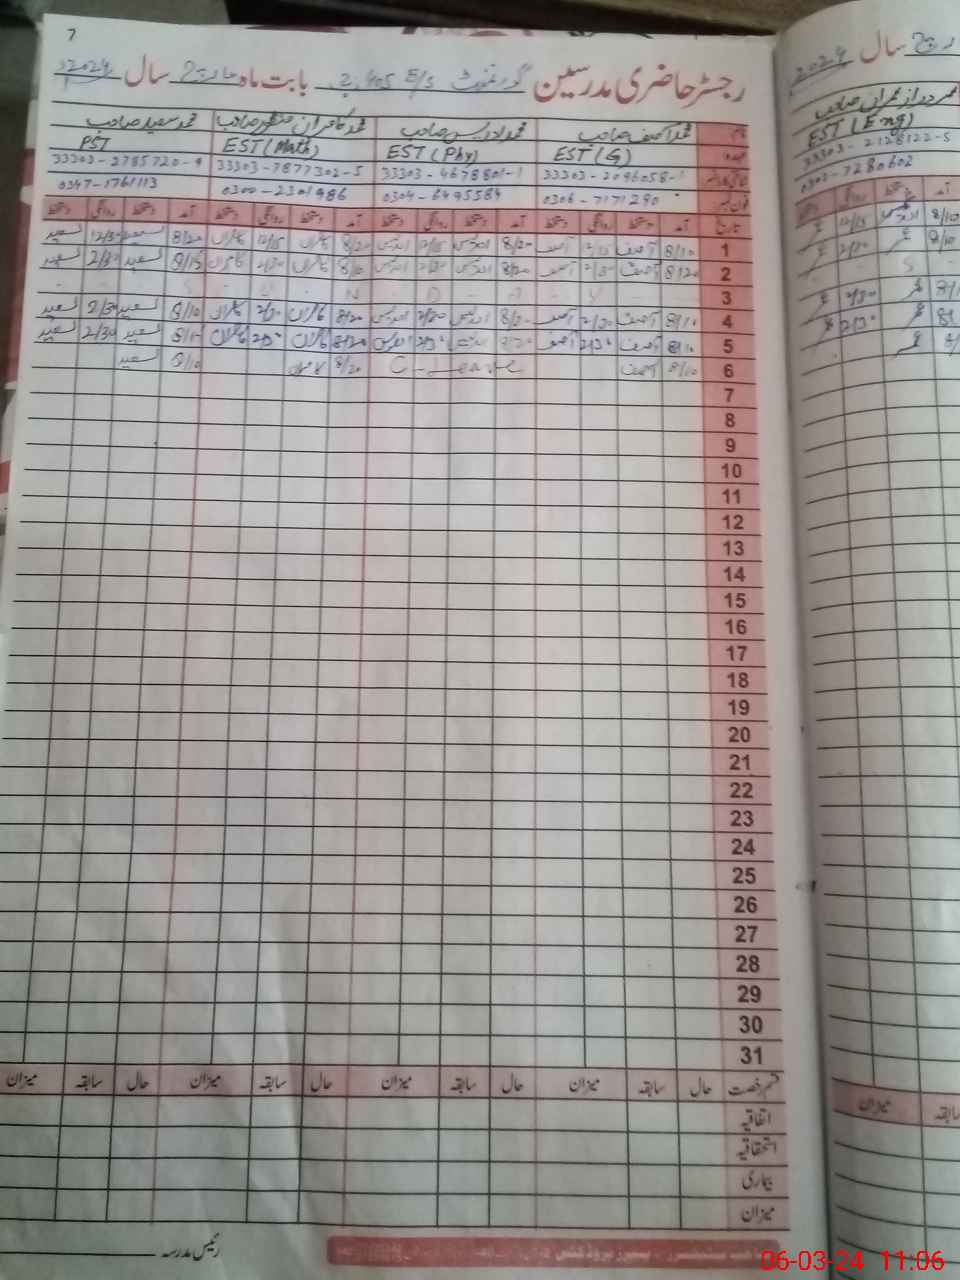 7
رجسٹر حاضری مدرسین گورنمنٹ E/S بابت ماہ مارچ سال 2024
نام محمد آصف صاحب محمد ادریس صاحب محمد کامران منظور صاحب محمد سعید صاحب
عہدہ EST (G) EST (Phy) EST (Math) PST
شناختی کارڈ نمبر 33303-2096058-1 33303-4678801-1 33303-7877302-5 33303-2785720-9
فون نمبر 0306-7171290 0304-6495584 0300-2301986 0347-1761113
تاریخ آمد دستخط روانگی دستخط آمد دستخط روانگی دستخط آمد دستخط روانگی دستخط آمد دستخط روانگی دستخط
1 8/10 آصف 12/15 آصف 8/20 ادریس 12/15 ادریس 8/20 کامران 12/15 کامران 8/20 سعید 12/30 سعید
2 8/20 آصف 2/30 آصف 8/20 ادریس 2/30 ادریس 8/10 کامران 2/30 کامران 8/15 سعید 2/30 سعید
3
4 8/10 آصف 2/30 آصف 8/20 ادریس 2/30 ادریس 8/20 کامران 2/30 کامران 8/10 سعید 2/30 سعید
5 8/10 آصف 2/30 آصف 8/20 ادریس 2/30 ادریس 8/20 کامران 2/30 کامران سعید 2/30 سعید
6 8/10 آصف C-Leave 8/20 کامران 8/10 سعید
7
8
9
10
11
12
13
14
15
16
17
18
19
20
21
22
23
24
25
26
27
28
29
30
31
قسم رخصت حال سابقہ میزان حال سابقہ میزان حال سابقہ میزان حال سابقہ میزان
اتفاقیہ
استحقاقیہ
بیماری
میزان
رئیس مدرسہ
سال 2024
EST (Eng)
33303-2128122-5
0303-7280602
آمد دستخط روانگی
میزان
سابقہ
06-03-24 11:06